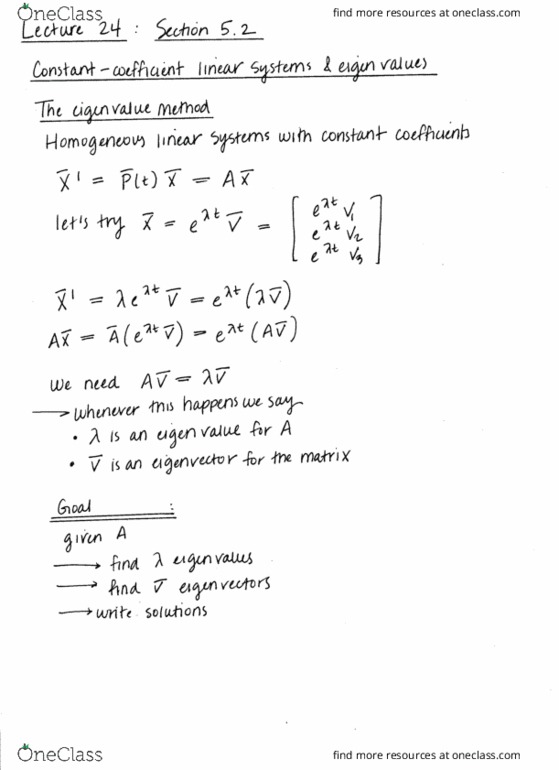 OneClass
find more resources at oneclass.com
Lecture 24 : Section 5.2
Constant-coefficient linear systems & eigenvalues
The eigenvalue method
Homogeneous linear systems with constant coefficients
X̄' = P̄(t) X̄ = AX̄
let's try X̄ = e^λt V̄ = [ e^λt V₁
e^λt V₂
e^λt V₃ ]
X̄' = λe^λt V̄ = e^λt (λV̄)
AX̄ = Ā(e^λt V̄) = e^λt (AV̄)
we need AV̄ = λV̄
→ whenever this happens we say
• λ is an eigenvalue for A
• V̄ is an eigenvector for the matrix
Goal :
given A
→ find λ eigenvalues
→ find V̄ eigenvectors
→ write solutions
OneClass
find more resources at oneclass.com